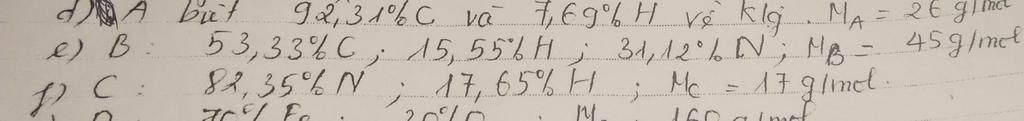 d) A biết 92,31%C và 7,69%H về klg. MA = 26 g/mol
e) B : 53,33%C ; 15,55%H ; 31,12%N ; MB = 45g/mol
f) C : 82,35%N ; 17,65%H ; Mc = 17g/mol.
70% Fe 30%O M 160 g/mol